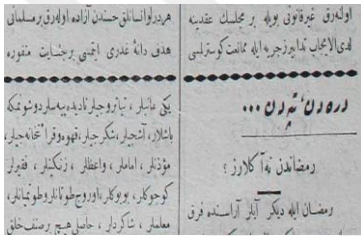 اولەرق غیر قانونی بویله بر مجلسك عقدینه
لدی الایجاب تدابیر زجریه ایله ممانعت کوسترلسی
دره دن، تپه دن ...
رمضاندن نه آکلارز ؟
رمضان ایله دیکر آیلر آراسنده فرق
هر درلو انسانلق حسندن آزاده اوله رق بر مسلمانی
هدف دانهٔ غدری ایتمسی بر جنایت منفوره
یکی مانیلر ، تیاتروجیلر تأدیدوبیه سی ارد و شو نمکه
باشلار، آشجیلر ، شکرجیلر، قهوه و قرائتخانه جیلر،
مؤذنلر ، اماملر ، واعظلر ، زنکینلر ، فقیرلر
کوجوکلر ، بویوکلر، اوروج طوتانلر و طوتمیانلر،
معلملر ، شاکردلر ، حاصلی هیچ بر صنف خلق